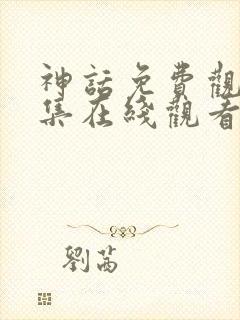 神話免費觀
集在綫觀看
劉茜